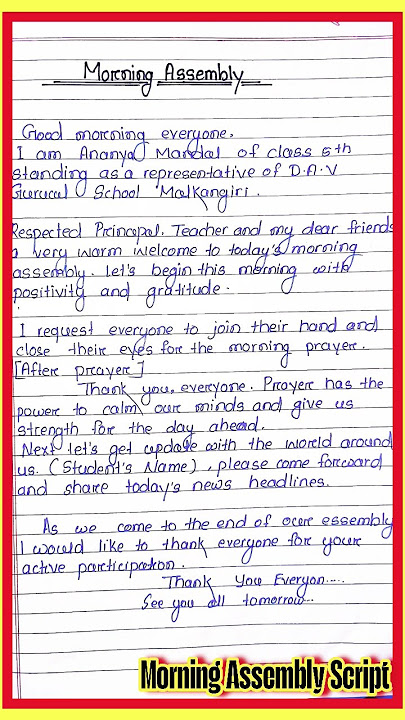 Morning Assembly
Good morning everyone.
I am Ananya Mandal of class 5th
standing as a representative of D.A.V
Gurucul School Malkangiri.
Respected Principal, Teacher and my dear friends
a very warm welcome to today's morning
assembly. Let's begin this morning with
positivity and gratitude.
I request everyone to join their hand and
close their eyes for the morning prayer.
[After prayer]
Thank you, everyone. Prayer has the
power to calm our minds and give us
strength for the day ahead.
Next let's get update with the world around
us. (Student's Name), please come forward
and share today's news headlines.
As we come to the end of our essembly
I would like to thank everyone for your
active participation.
Thank You Everyon....
See you all tomorrow...
Morning Assembly Script